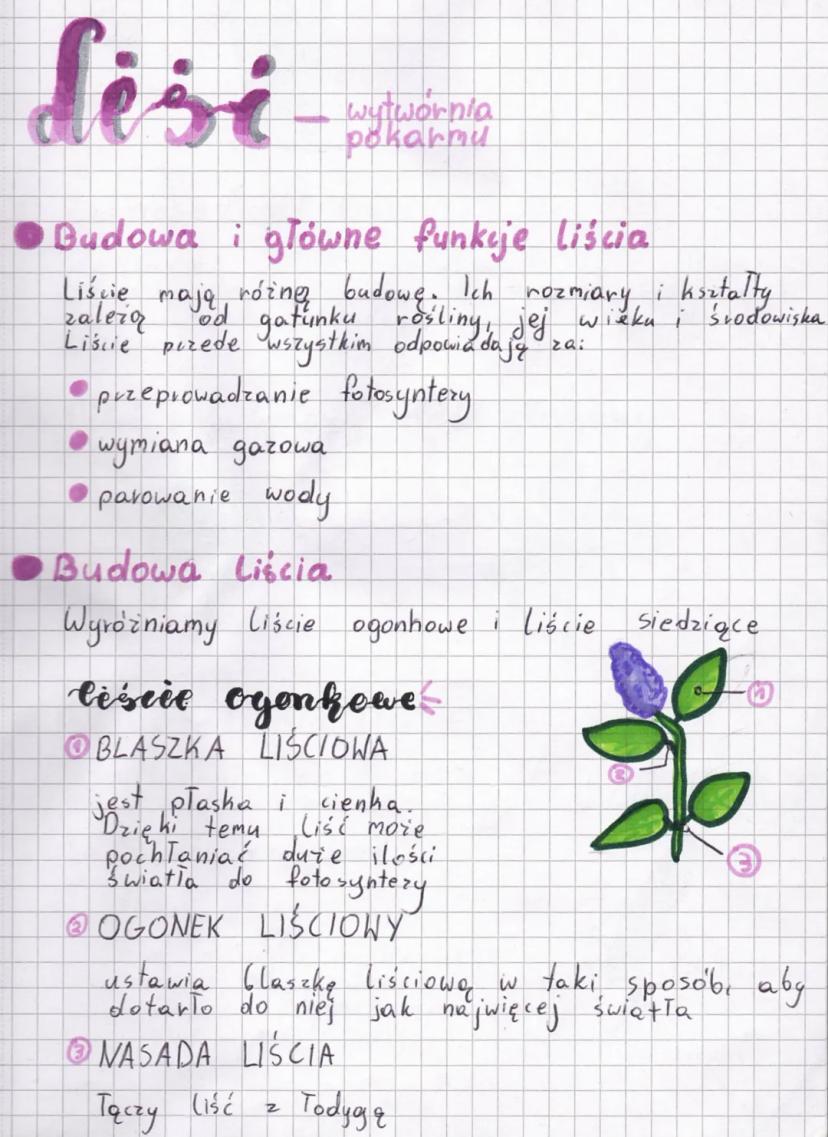 liści – wytwórnia
pokarmu
Budowa i główne funkcje liścia
Liście mają różną budowę. Ich rozmiary i kształty
zależą od gatunku rośliny, jej wieku i środowiska
Liście przede wszystkim odpowiadają za:
przeprowadzanie fotosyntezy
wymiana gazowa
parowanie wody
Budowa liścia
Wyróżniamy liście ogonkowe i liście siedzące
liście ogonkowe
1 BLASZKA LIŚCIOWA
jest płaska i cienka.
Dzięki temu liść może
pochłaniać duże ilości
światła do fotosyntezy
1
2
3
2 OGONEK LIŚCIOWY
ustawia blaszkę liściową w taki sposób, aby
dotarło do niej jak najwięcej światła
3 NASADA LIŚCIA
łączy liść z łodygą